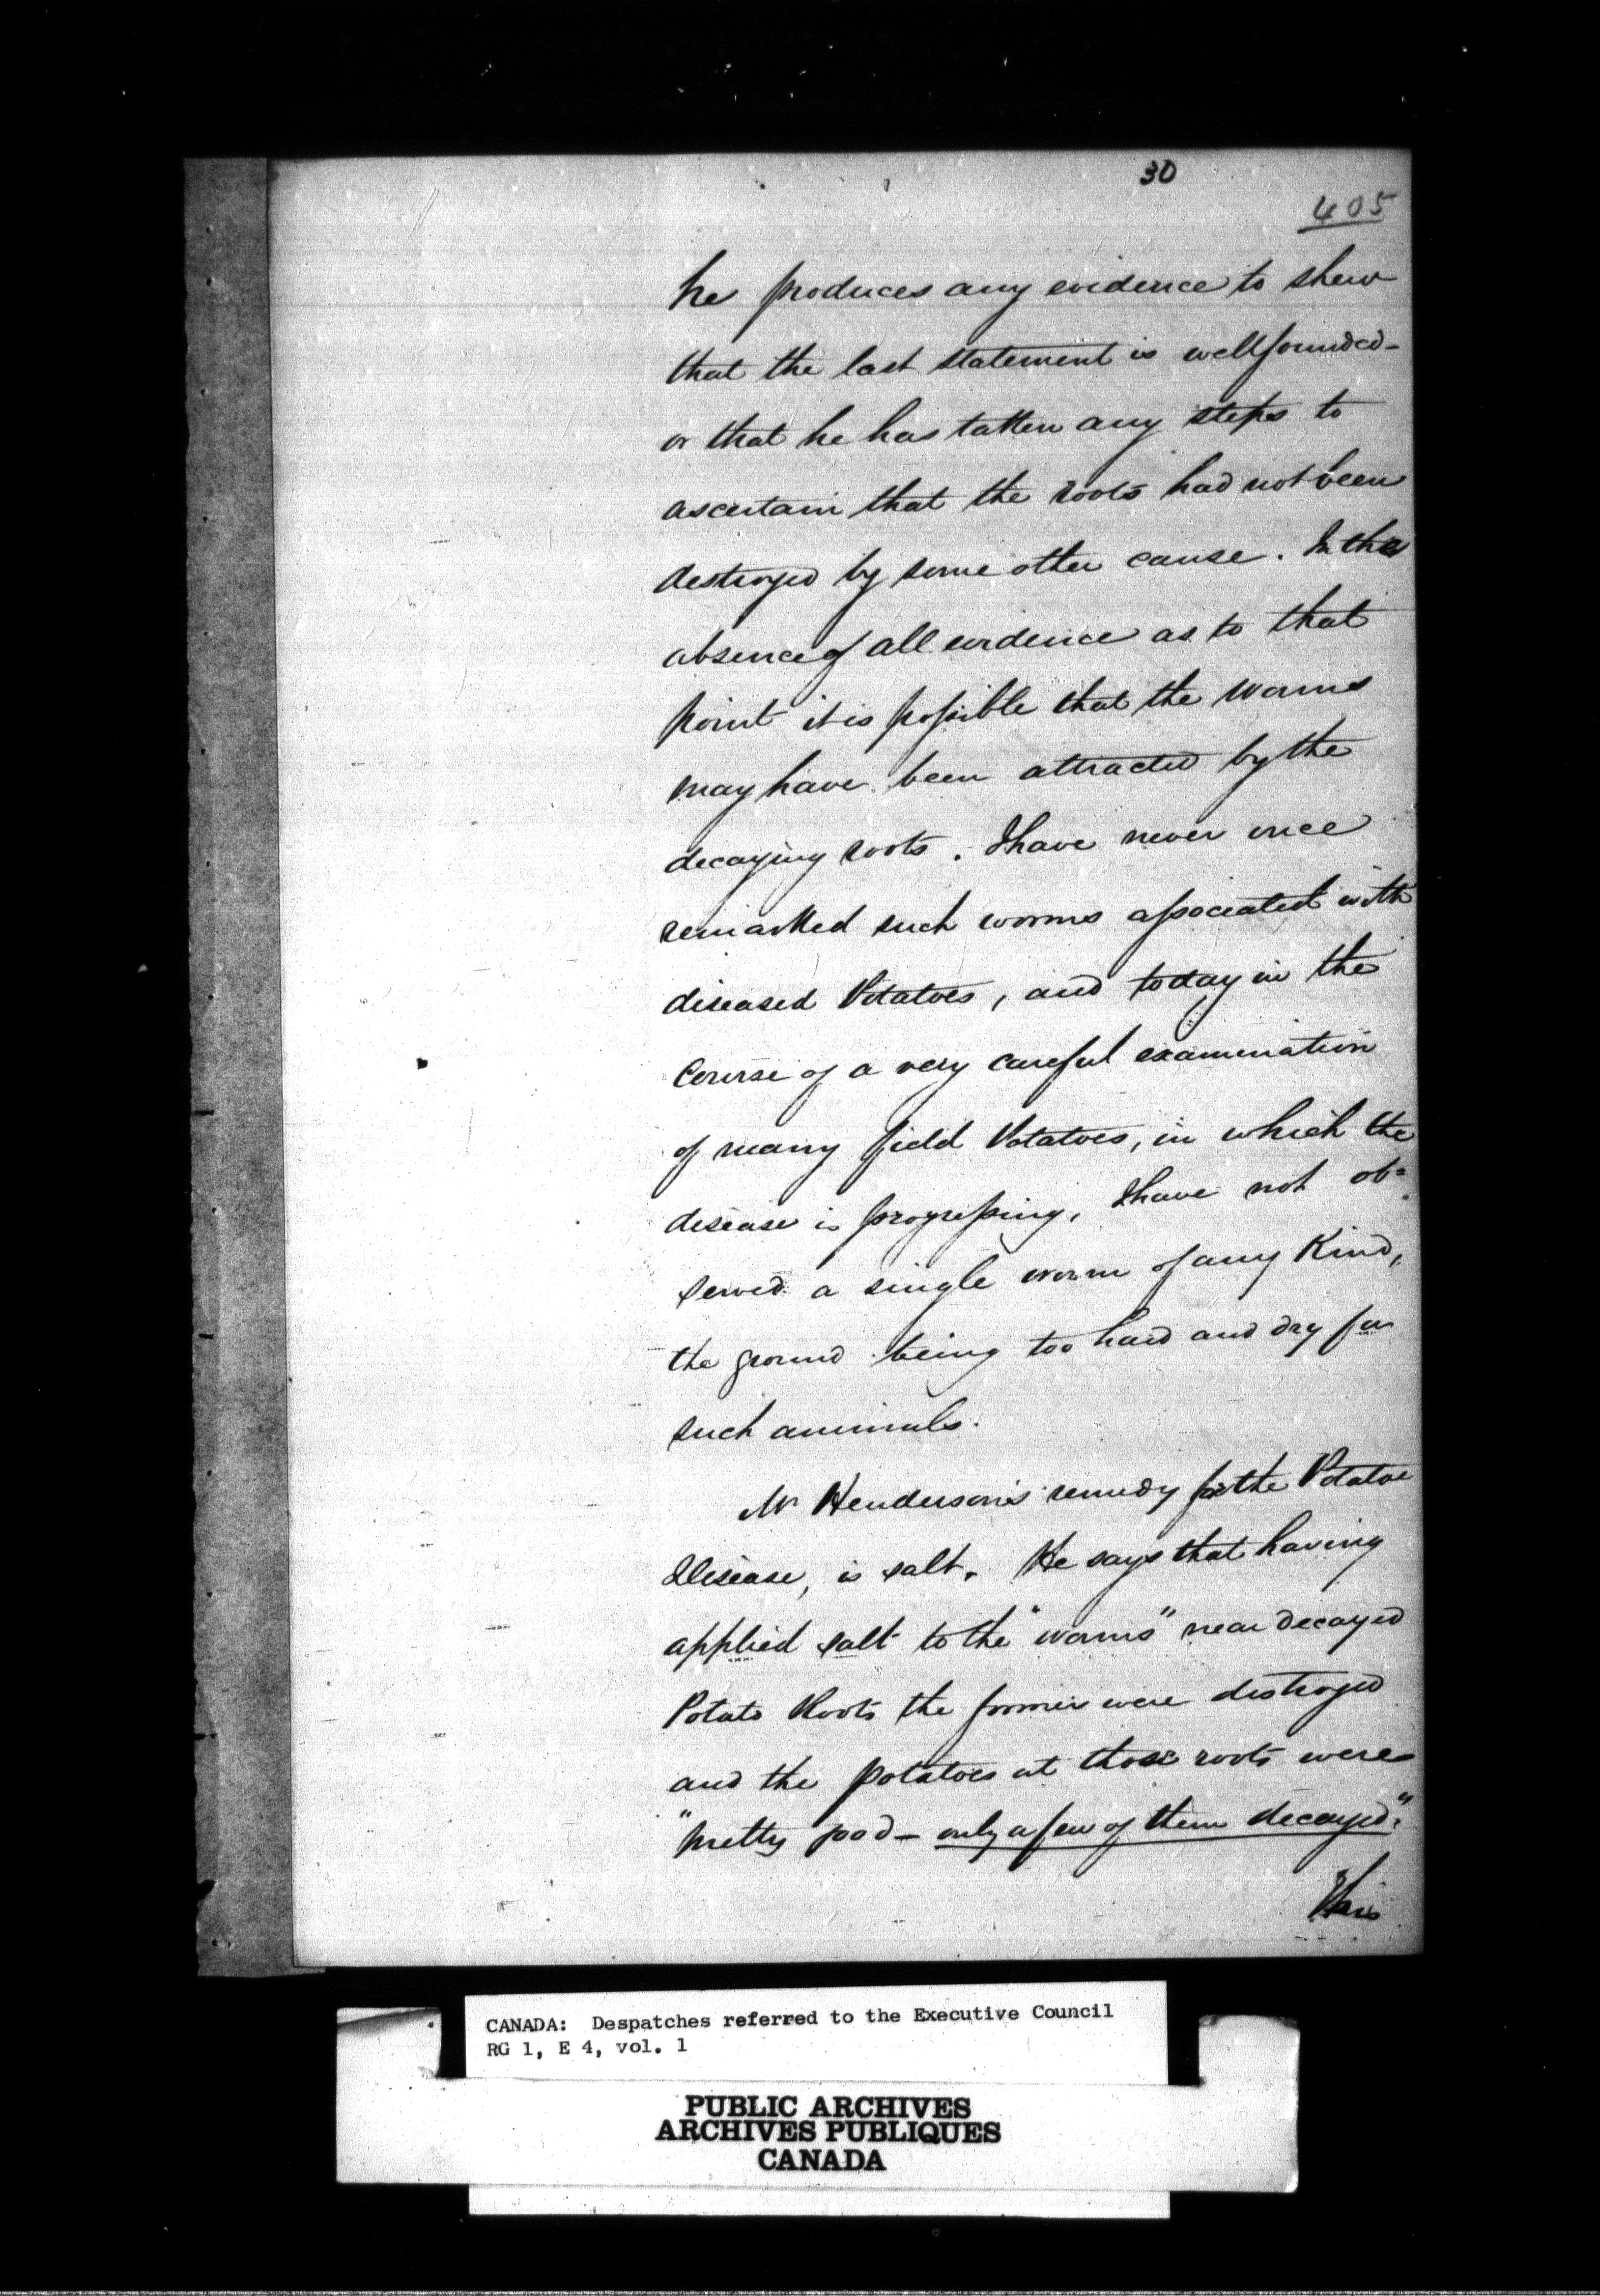 30
405
he produces any evidence to shew
that the last statement is wellfounded -
or that he has taken any steps to
ascertain that the roots had not been
destroyed by some other cause. In the
absence of all evidence as to that
point it is possible that the worms
may have been attracted by the
decaying roots. I have never once
remarked such worms associated with
diseased Potatoes, and today in the
course of a very careful examination
of many field Potatoes, in which the
disease is progressing, I have not ob=
served a single worm of any Kind,
the ground being too hard and dry for
such animals.
Mr Henderson's remedy for the Potatoe
Disease, is salt. He says that having
applied salt to the "worms" near decayed
Potato Roots the former were destroyed
and the potatoes at those roots were
"pretty good - only a few of them decayed."
This
CANADA: Despatches referred to the Executive Council
RG 1, E 4, vol. 1
PUBLIC ARCHIVES
ARCHIVES PUBLIQUES
CANADA